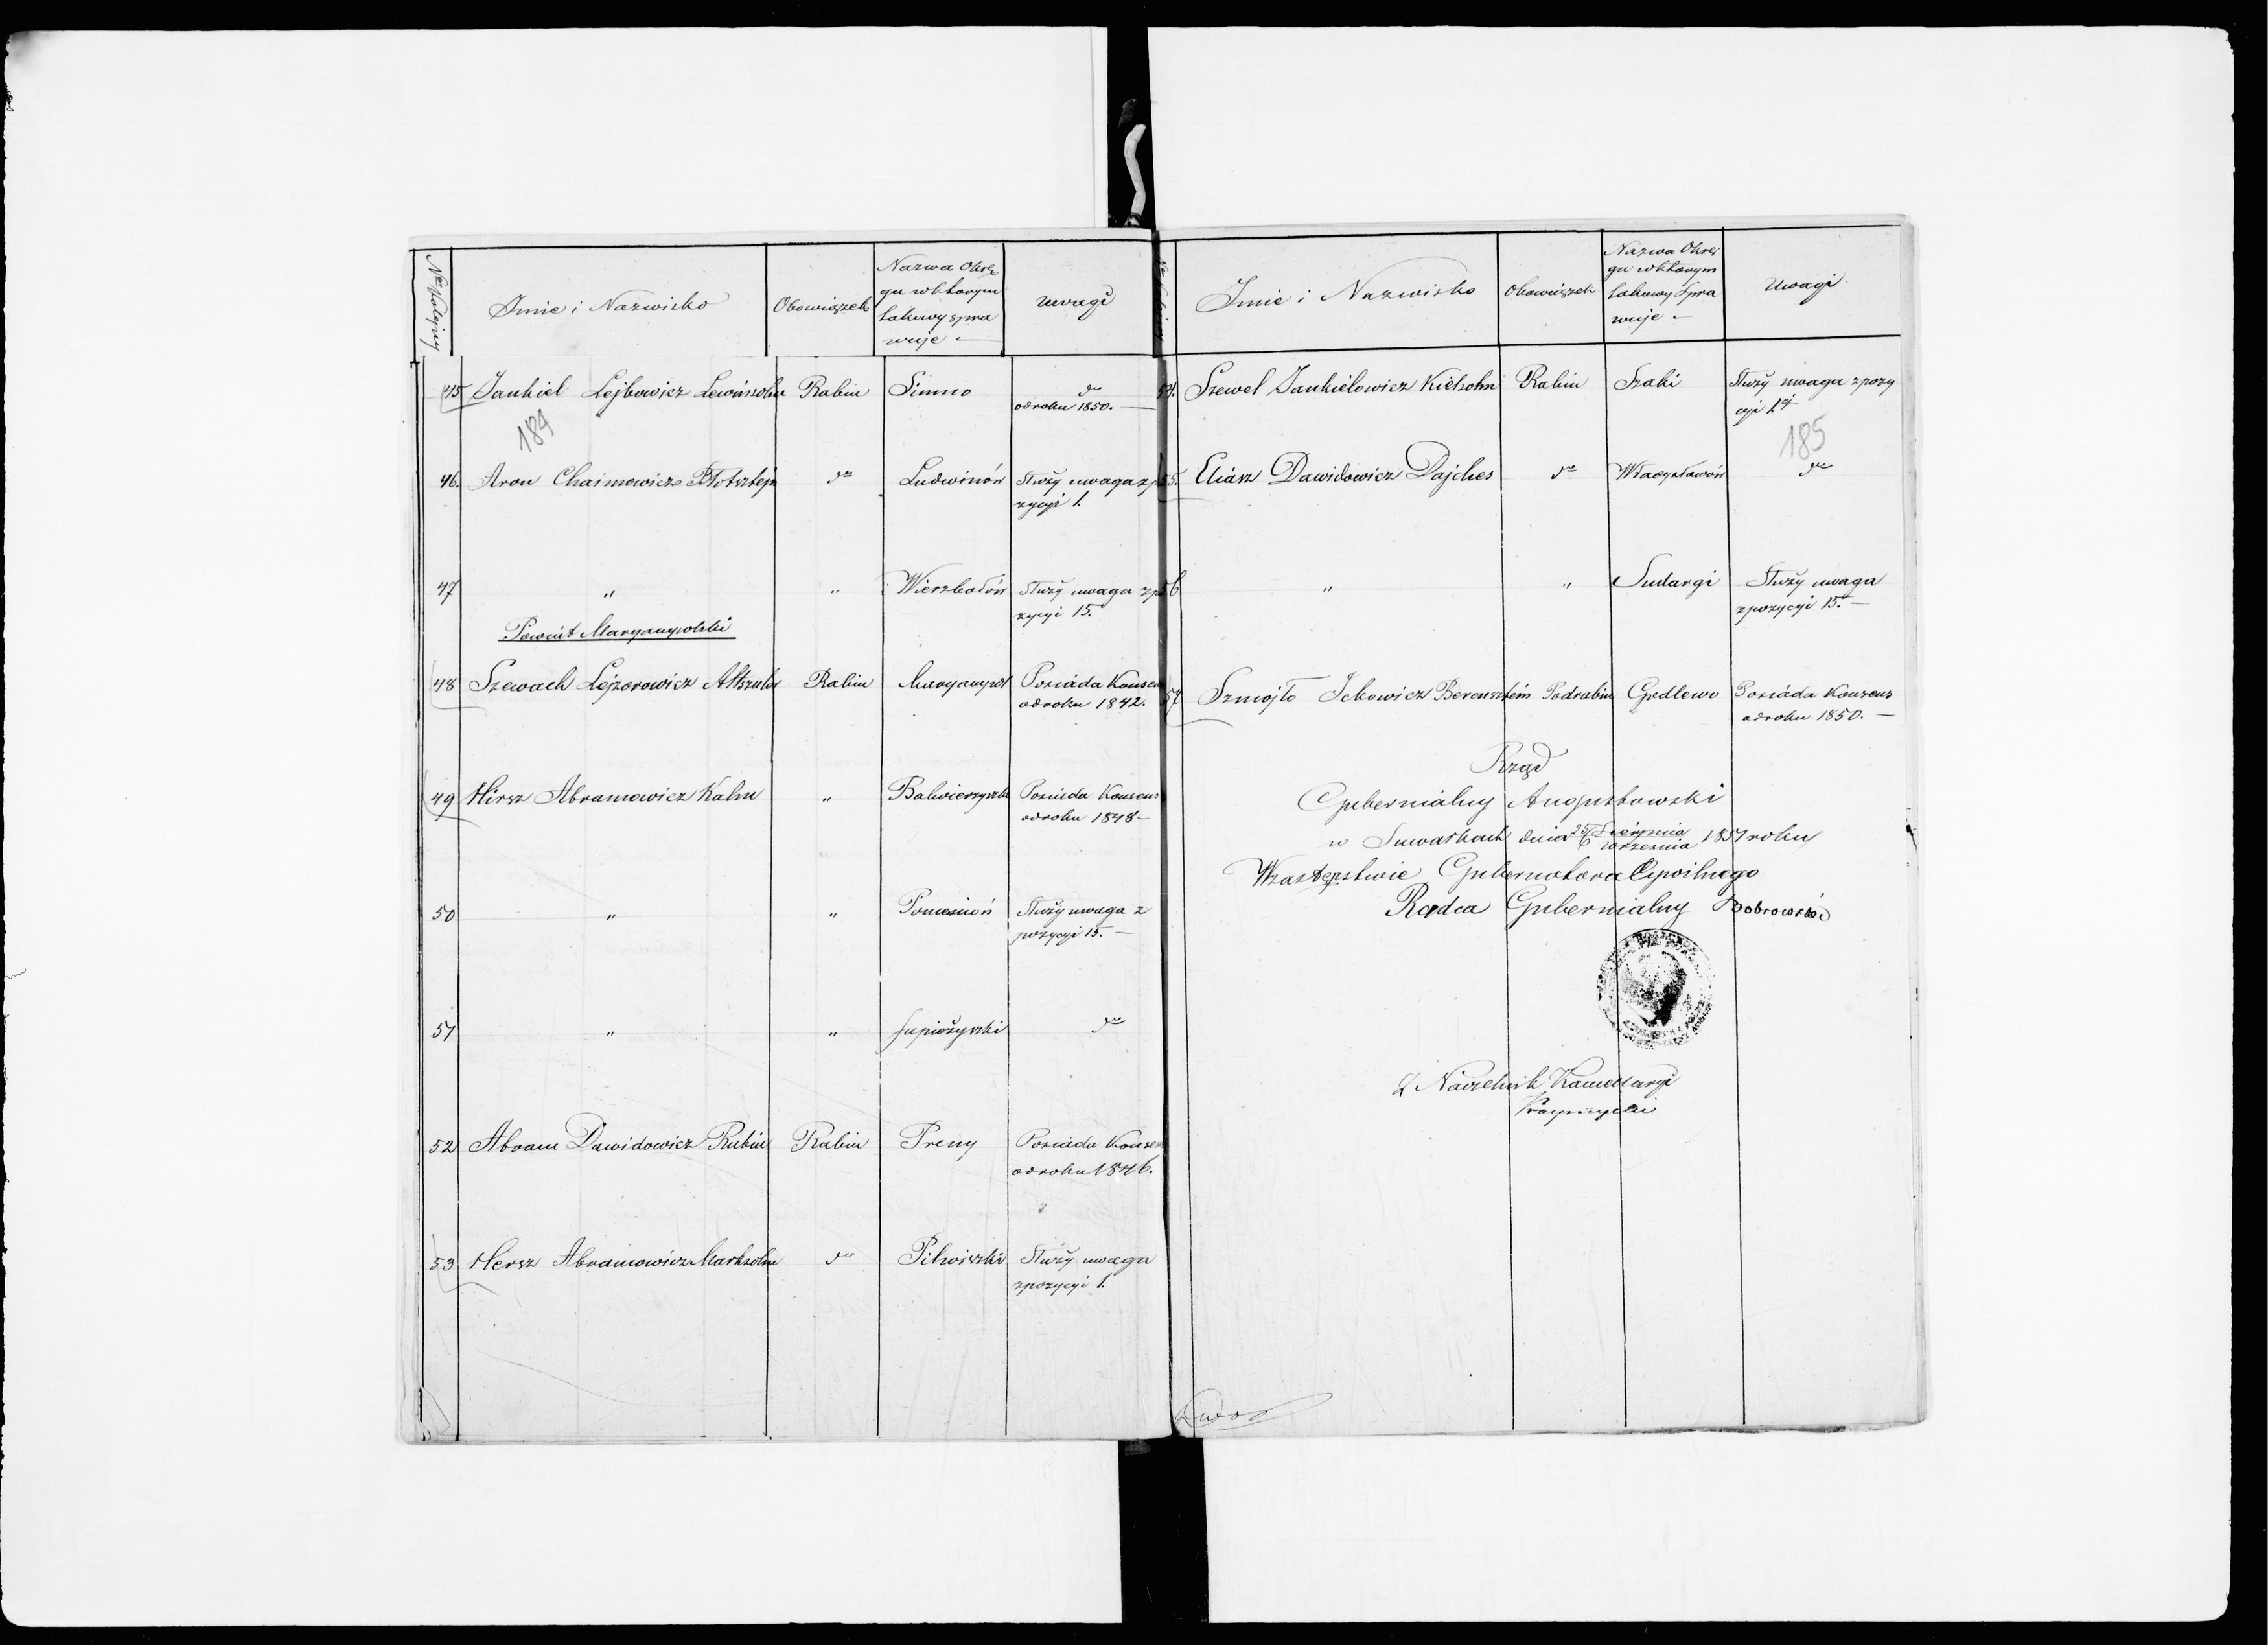 No Kolejny
Imie i Nazwisko
Obowiązek
Nazwa Okrę
gu w którym
takowy spra
wuje
Uwagi
45 Jankiel Lejbowicz Lewinsohn Rabin Simno do
od roku 1850. —
184
46. Aron Chaimowicz Błotsztejn do Ludwinów Służy uwaga z p
zycyi 1.
47 " " Wierzbołów Służy uwaga z p
zycyi 15.
Powiat Maryampolski
48 Szewach Lejzorowicz Altszuler Rabin Maryampol Posiada Konsens
od roku 1842.
49 Hirsz Abramowicz Kahn " Balwierzyszki Posiada Konsens
od roku 1848 —
50 " " Poniemoń Służy uwaga z
pozycyi 15. —
51 " " Sapieżyszki do
52 Abram Dawidowicz Rubin Rabin Preny Posiada Konsen
od roku 1846.
53 Hersz Abramowicz Marksohn do Pilwiszki Służy uwaga
z pozycyi 1.
Imie i Nazwisko
Obowiązek
Nazwa Okrę
gu w którym
takowy spra
wuje
Uwagi
54. Szewel Jankielowicz Kielsohn Rabin Szaki Służy uwaga z pozy
cyi 1ej
185
55. Eliasz Dawidowicz Dajches do Władysławów do
56 " " Sudargi Służy uwaga
z pozycyi 15. —
57 Szmojło Ickowicz Berensztein Podrabin Godlewo Posiada Konsens
od roku 1850. —
Rząd
Gubernialny Augustowski
w Suwałkach dnia 25/6 Sierpnia/Września 1851 roku
W zastępstwie Gubernatora Cywilnego
Radca Gubernialny Dobrowolski
Z Naczelnik Kancellaryi